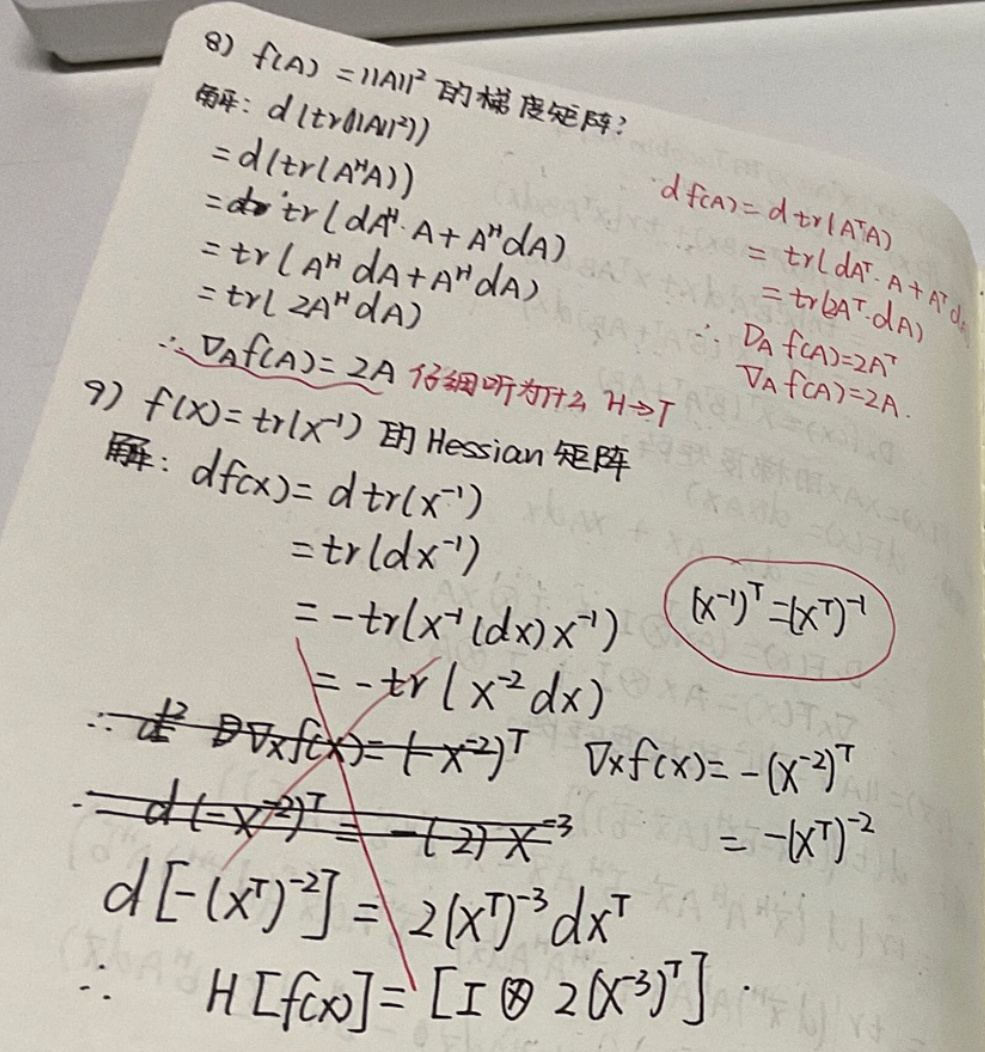 8) f(A) = ||A||² 的梯度矩阵?
解: d(tr(||A||²))
= d(tr(AᴴA))
= tr(dAᴴ·A + AᴴdA)
= tr(AᴴdA + AᴴdA)
= tr(2AᴴdA)
∴ ∇_A f(A) = 2A 仔细听为什么 H→T
d f(A) = d tr(AᵀA)
= tr(dAᵀ·A + Aᵀd
= tr(2Aᵀ·dA)
∴ D_A f(A) = 2Aᵀ
∇_A f(A) = 2A.
9) f(X) = tr(X⁻¹) 的 Hessian 矩阵
解: df(X) = d tr(X⁻¹)
= tr(dX⁻¹)
= -tr(X⁻¹(dX)X⁻¹)
(X⁻¹)ᵀ = (Xᵀ)⁻¹
= -tr(X⁻²dX)
∴ ∇_X f(X) = (-X⁻²)ᵀ ∇_X f(X) = -(X⁻²)ᵀ
d(-X⁻²)ᵀ = -(-2)X⁻³ = -(Xᵀ)⁻²
d[-(Xᵀ)⁻²] = 2(Xᵀ)⁻³dXᵀ
∴ H[f(X)] = [I ⊗ 2(X⁻³)ᵀ].